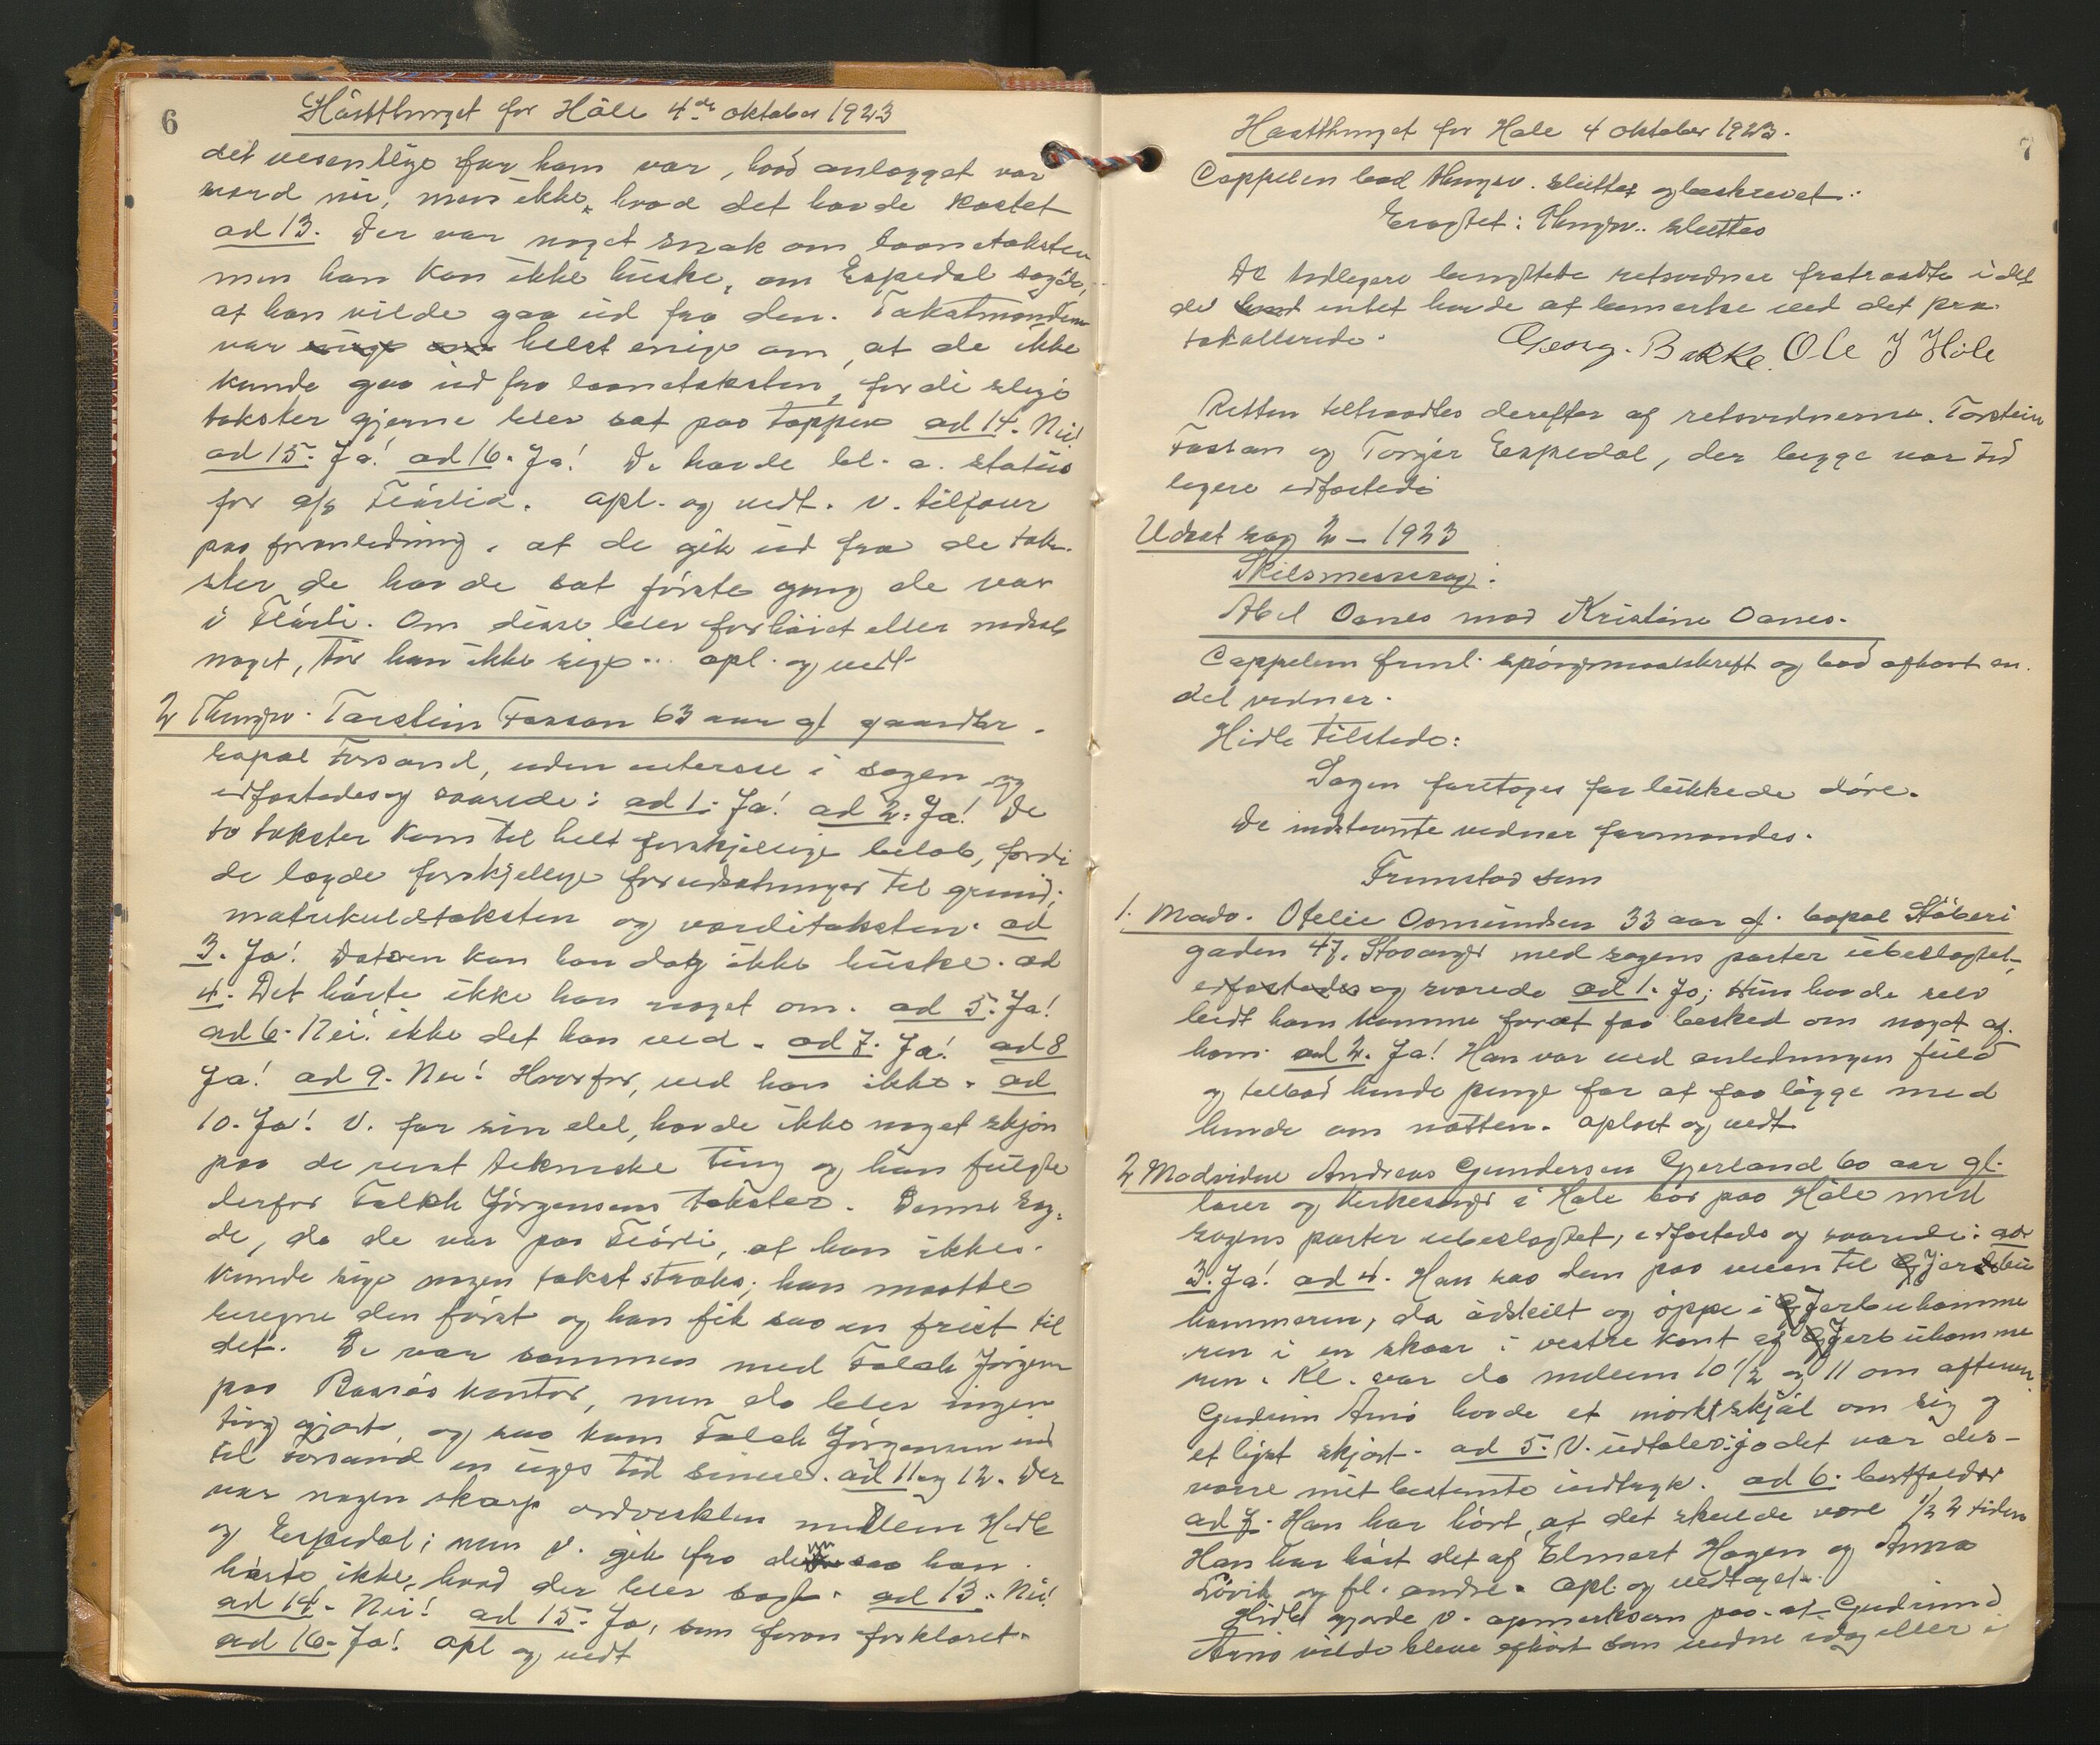 6
Hästthinget for Höle 4de oktober 1923
det vesentlige for ham var, hvad anlægget var
værd nu, men ikke, hvad det havde kostet
ad 13. Der var noget snak om laanetaksten
men han kan ikke huske, om Espedal sagde,
at han vilde gaa ud fra den. Takstmændene
var helst enige om, at de ikke
kunde gaa ud fra laanetaksten, fordi slige
takster gjerne blev sat paa toppen ad 14. Nei!
ad 15. Ja! ad 16. Ja! De havde bl. a. status
for a/s Fløirlia. opl. og vedt. V. tilføier
paa foranledning, at de gik ud fra de tak-
ster de havde sat første gang de var
i Fløirli. Om disse blev forhøiet eller nedsat
noget, tør han ikke sige. opl. og vedt.
2 Thingv. Torstein Fossan 63 aar gl gaardbr.
bopæl Forsand, uden interesse i sagen og
edfæstedes og svarede: ad 1. Ja! ad 2. Ja! De
to takster kom til helt forskjellige beløb, fordi
de lagde forskjellige forudsætninger til grund;
matrikulstaksten og værditaksten. ad
3. Ja! Datoen kan han dog ikke huske. ad
4. Det hørte ikke han noget om. ad 5. Ja!
ad 6. Nei! ikke det han ved. ad 7. Ja! ad 8
Ja! ad 9. Nei! Hvorfor, ved han ikke. ad
10. Ja! V. for sin del, havde ikke noget skjøn
paa de rent tekniske ting og han fulgte
derfor Falch Jørgensens takster. Denne sag-
de, da de var paa Fløirli, at han ikke
kunde sige nogen takst straks; han maatte
beregne den først og han fik saa en frist til
det. De var sammen med Falch Jørgens
paa kontor, men da blev ingen
ting gjort, og saa kom Falch Jørgensen ind
til Forsand en uges tid senere. ad 11 og 12. Der
var nogen skarp ordveksling mellem Hidle
og Espedal; men V. gik fra saa han
hørte ikke, hvad der blev sagt. ad 13. Nei!
ad 14. Nei! ad 15. Ja, som foran forklaret.
ad 16. Ja! Opl og vedt
7
Høstthinget for Høle 4 oktober 1923.
Cappelen bad thingsv. sluttet og beskrevet.
Eragtet: Thingsv. sluttes
De tidligere retsvidner fratraadte idet
de intet havde at bemerke ved det pro-
tokollerede.
Georg. Bakke. Ole J Höle
Retten tiltraadtes derefter af retsvidnerne. Torstein
Fossan og Torger Espedal, der begge var tid
ligere edfæstede
Udsat sag 2 – 1923
Skilsmessesag:
Abel Oanes mod Kristine Oanes.
Cappelen freml. spørgsmaalskrift og bad afhørt en
del vidner.
Hidle tilstede:
Sagen foretoges for lukkede døre.
De indstevnte vidner formandes.
Fremstod som
1. Modv. Otelie Osmundsen 33 aar gl. bopæl Støberi
gaden 47. Stavanger med sagens parter ubeslægtet,
edfæstedes og svarede ad 1. Ja; Hun havde selv
bedt ham komme forat faa besked om noget af
ham. ad 2. Ja! Han var ved anledningen fuld
og tilbød hende penge for at faa ligge med
hende om natten. oplæst og vedt
2 Modvidne Andreas Gundersen Gjerland 60 aar gl.
lærer og kirkesanger i Høle bor paa Høle med
sagens parter ubeslægtet, edfæsteds og svarede: ad
3. Ja! ad 4. Han saa dem paa veien til
hammeren, da adskilt og oppe i
ren i en skaar i vestre kant af
ren. Kl. var da mellem 10 1/2 og 11 om aftenen
Gudrun Arno havde et mørkt skjal om sig og
et lyst skjørt. ad 5. V. udtaler: ja det var des-
værre mit bestemte indtryk. ad 6. bortfalder
ad 7. Han har hørt, at det skulde være 1/2 2 tiden
Han har hørt det af Elmert Hagen og Anna
Løvik og fl. andre. Opl. og vedtaget.
Hidle gjorde V. opmerksom paa at Gudrun
Arno vilde bleve afhørt som vidne idag eller i